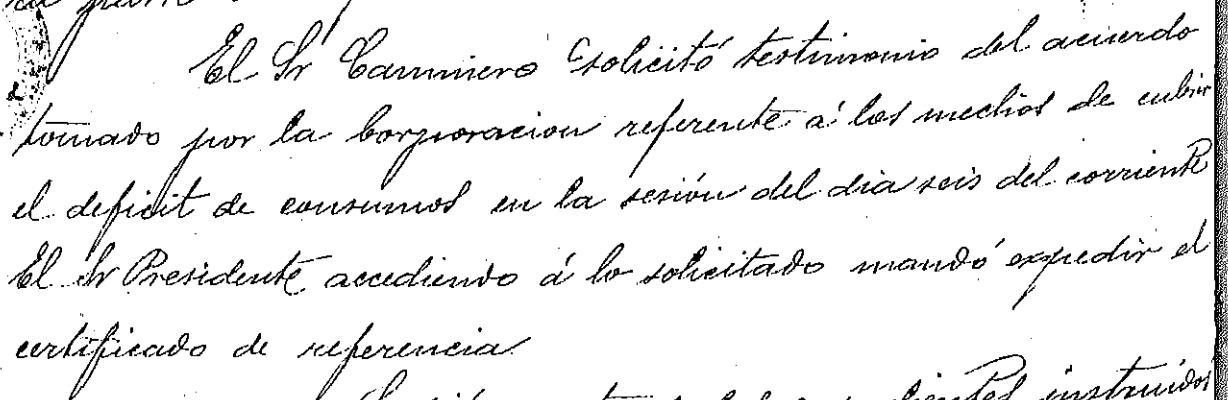 El Sr Camminero solicitó testimonio del acuerdo
tomado por la Corporacion referente á los medios de cubrir
el deficit de consumos en la sesión del dia seis del corriente
El Sr Presidente accediendo á lo solicitado mandó expedir el
certificado de referencia
instruidos